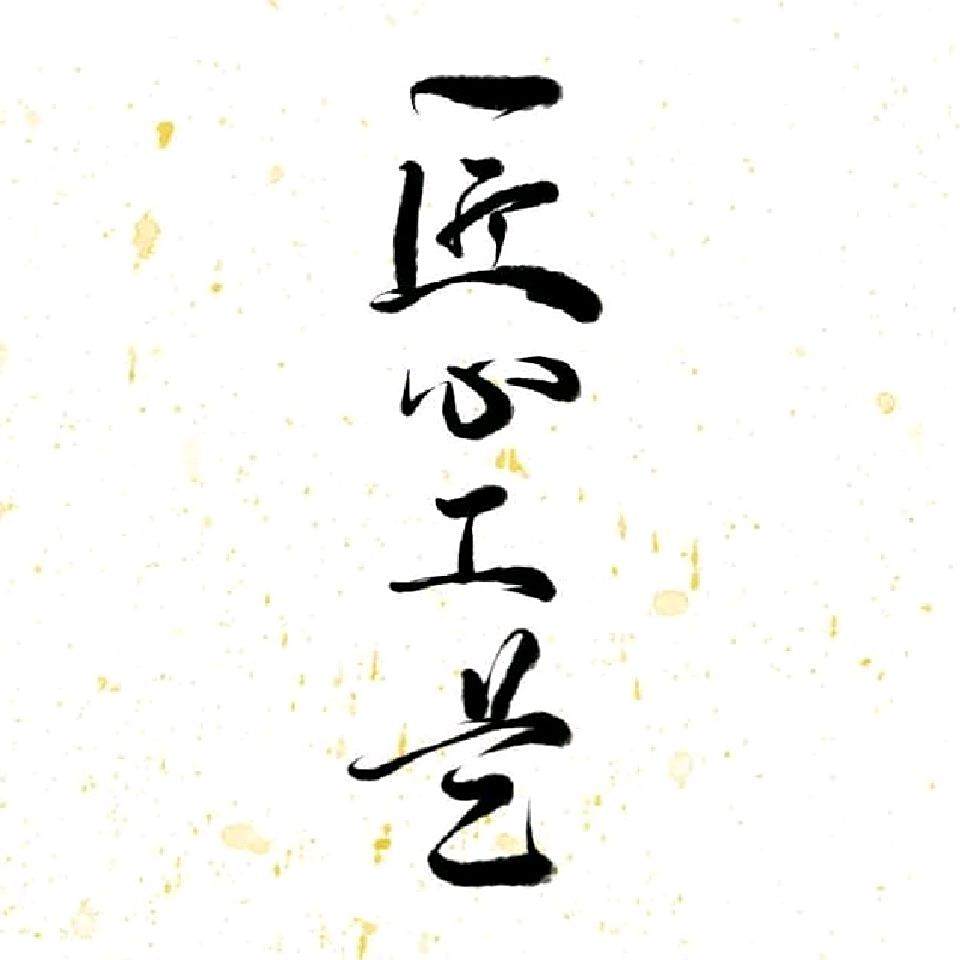 一匠心工艺